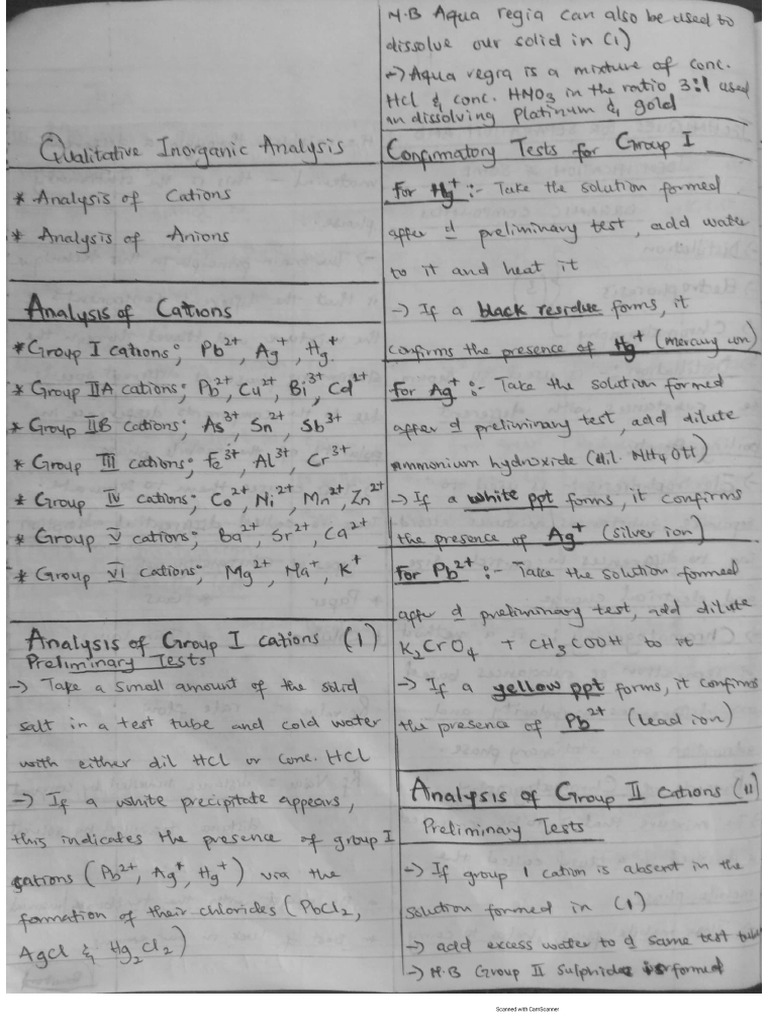 Qualitative Inorganic Analysis
* Analysis of Cations
* Analysis of Anions
Analysis of Cations
* Group I cations; Pb²⁺, Ag⁺, Hg⁺
* Group IIA cations; Pb²⁺, Cu²⁺, Bi³⁺, Cd²⁺
* Group IIB cations; As³⁺, Sn²⁺, Sb³⁺
* Group III cations; Fe³⁺, Al³⁺, Cr³⁺
* Group IV cations; Co²⁺, Ni²⁺, Mn²⁺, Zn²⁺
* Group V cations; Ba²⁺, Sr²⁺, Ca²⁺
* Group VI cations; Mg²⁺, Na⁺, K⁺
Analysis of Group I cations (1)
Preliminary Tests
-> Take a small amount of the solid
salt in a test tube and cold water
with either dil HCl or Conc. HCl
-> If a white precipitate appears,
this indicates the presence of group I
cations (Pb²⁺, Ag⁺, Hg⁺) via the
formation of their chlorides (PbCl₂,
AgCl & Hg₂Cl₂)
N.B Aqua regia can also be used to
dissolve our solid in (1)
-> Aqua regia is a mixture of conc.
HCl & conc. HNO₃ in the ratio 3:1 used
in dissolving Platinum & gold
Confirmatory Tests for Group I
For Hg⁺ :- Take the solution formed
after d preliminary test, add water
to it and heat it
-> If a black residue forms, it
confirms the presence of Hg⁺ (mercury ion)
For Ag⁺ :- Take the solution formed
after d preliminary test, add dilute
ammonium hydroxide (dil. NH₄OH)
-> If a white ppt forms, it confirms
the presence of Ag⁺ (silver ion)
For Pb²⁺ :- Take the solution formed
after d preliminary test, add dilute
K₂CrO₄ + CH₃COOH to it
-> If a yellow ppt forms, it confirms
the presence of Pb²⁺ (lead ion)
Analysis of Group II Cations (II)
Preliminary Tests
-> If group 1 cation is absent in the
solution formed in (1)
-> add excess water to d same test tube
-> N.B Group II Sulphide is formed
Scanned with CamScanner